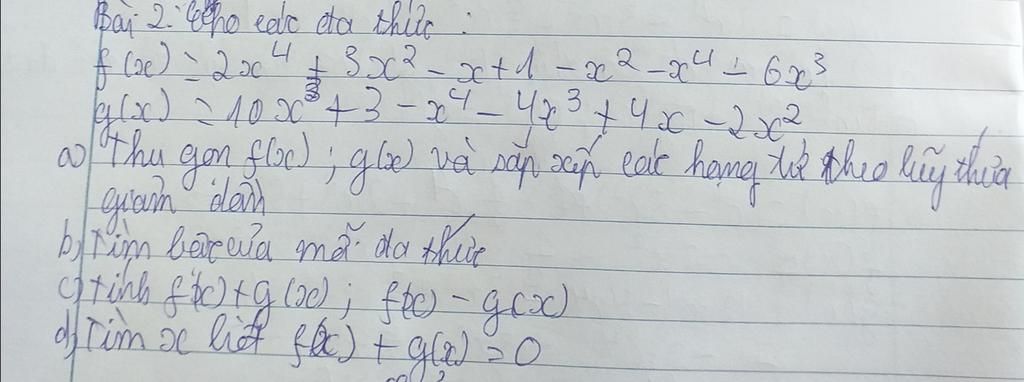 Bài 2: Cho các đa thức :
f(x) = 2x⁴ + 3x² - x + 1 - x² - x⁴ - 6x³
g(x) = 10x³ + 3 - x⁴ - 4x³ + 4x - 2x²
a) Thu gọn f(x) ; g(x) và sắp xếp các hạng tử theo lũy thừa
giảm dần
b) Tìm bậc của mỗi đa thức
c) tính f(x) + g(x) ; f(x) - g(x)
d) Tìm x biết f(x) + g(x) = 0